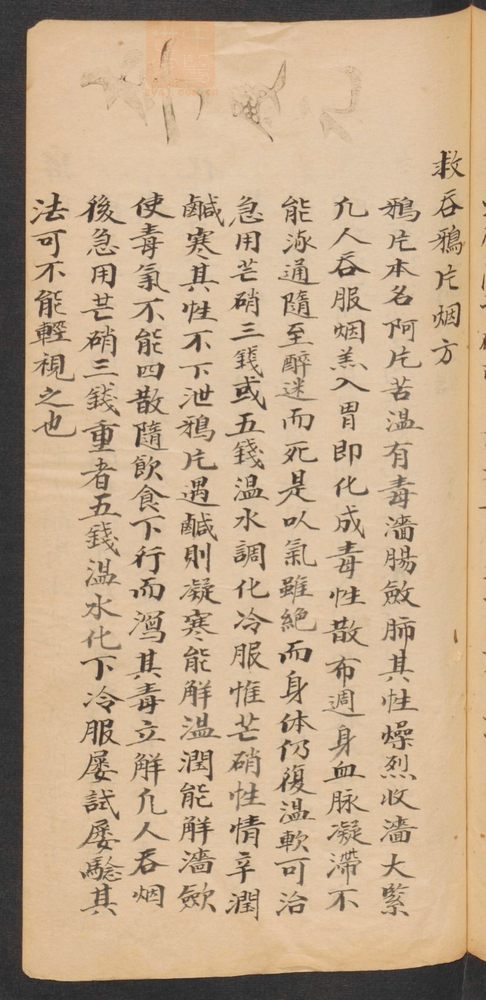 救吞鴉片烟方
鴉片本名阿片苦温有毒濇腸斂肺其性燥烈收濇大緊
凢人吞服烟羔入胃即化成毒性散布週身血脉凝滯不
能流通隨至醉迷而死是以氣雖絕而身体仍復温軟可治
急用芒硝三錢或五錢温水調化冷服惟芒硝性情辛潤
鹹寒其性不下泄鴉片遇鹹則凝寒能解温潤能解濇歛
使毒氣不能四散隨飲食下行而瀉其毒立解凢人吞烟
後急用芒硝三錢重者五錢温水化下冷服屡試屡騐其
法可不能輕視之也